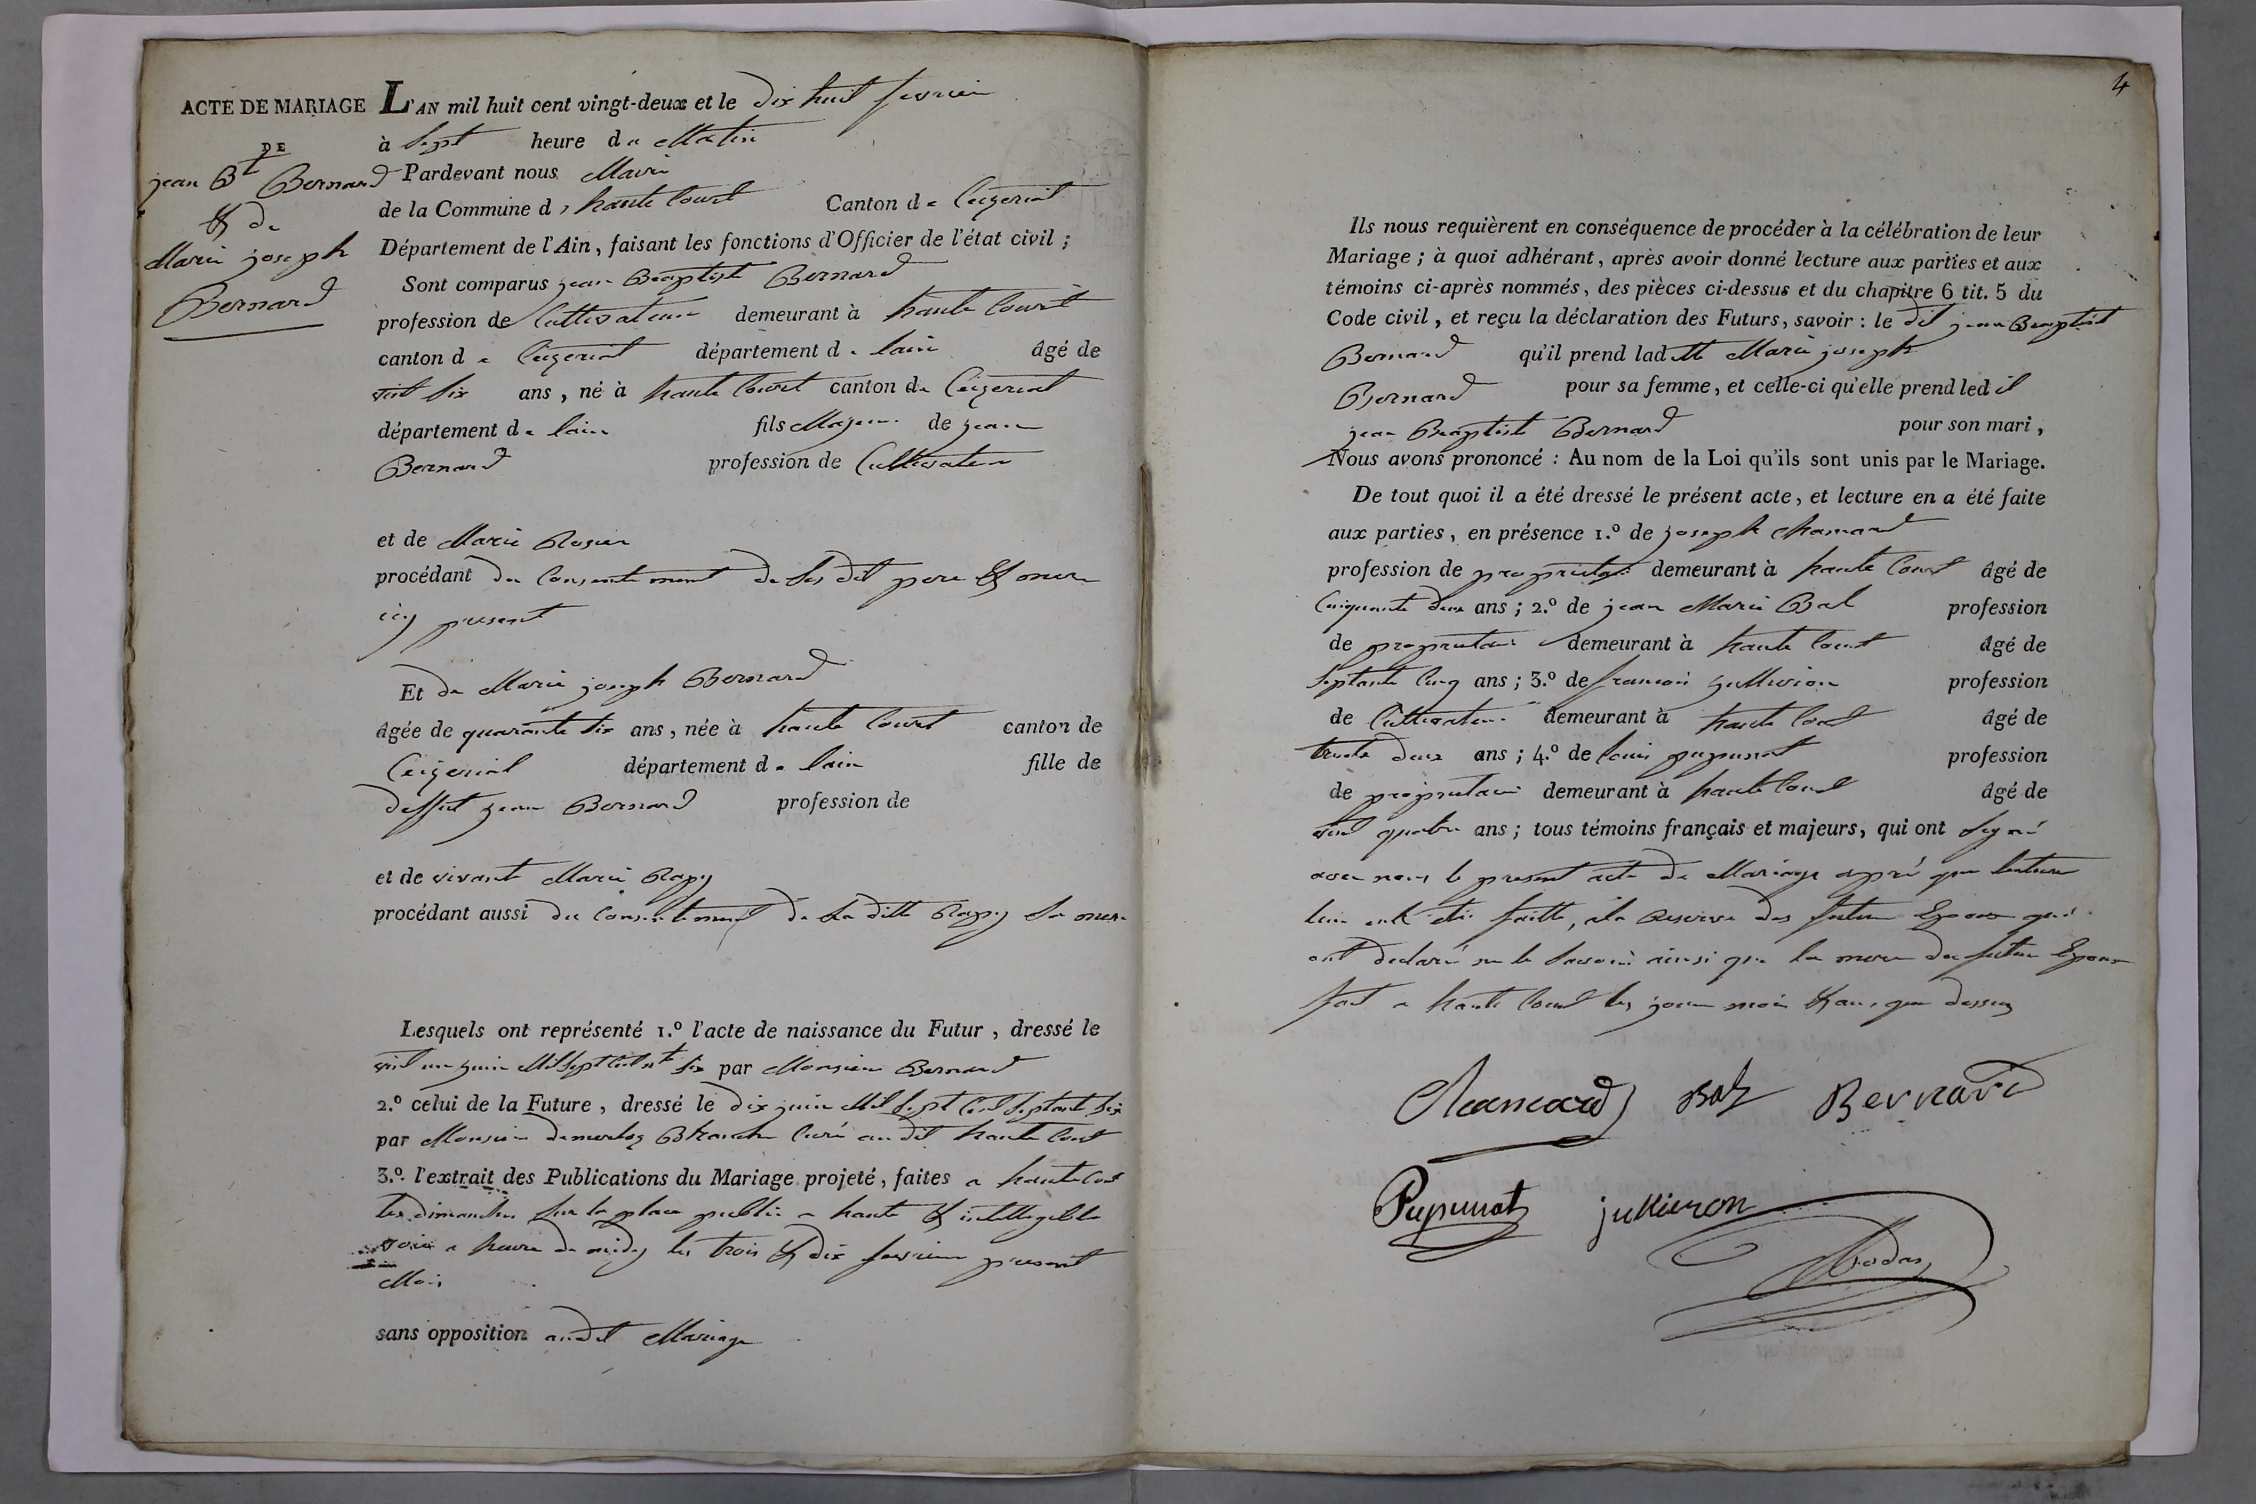 ACTE DE MARIAGE
DE
jean Bt Bernard
& de
Marie joseph
Bernard
L'AN mil huit cent vingt-deux et le dix huit fevrier
à Sept heure du Matin
Pardevant nous Maire
de la Commune d haute Court Canton de Ceizeriat
Département de l'Ain, faisant les fonctions d'Officier de l'état civil ;
Sont comparus jean Baptist Bernard
profession de Cultivateur demeurant à haute Court
canton de Ceizeriat département de lain âgé de
vint six ans, né à haute Court canton de Ceizeriat
département de lain fils Majeur de jean
Bernard profession de Cultivateur
et de Marie Rosier
procédant du Consentement de ses dit pere & mere
icy present
Et de Marie joseph Bernard
âgée de quarante six ans, née à haute Court canton de
Ceizeriat département de lain fille de
deffut jean Bernard profession de
et de vivante Marie Rapy
procédant aussi du Consentement de sa ditte Rapy sa mere
Lesquels ont représenté 1.º l'acte de naissance du Futur, dressé le
vint un juin Mil Sept Cent six par Monsieur Bernard
2.º celui de la Future, dressé le dix juin Mil Sept Cent Septante Six
par Monsieur Curé au dit haute Court
3.º l'extrait des Publications du Mariage projeté, faites a haute Court
les dimanches sur la place public a haute & intelligible
voix a heure de midy les trois & dix fevrier present
Mois
sans opposition audit Mariage
4
Ils nous requièrent en conséquence de procéder à la célébration de leur
Mariage ; à quoi adhérant, après avoir donné lecture aux parties et aux
témoins ci-après nommés, des pièces ci-dessus et du chapitre 6 tit. 5 du
Code civil, et reçu la déclaration des Futurs, savoir : le dit jean Baptist
Bernard qu'il prend ladtte Marie joseph
Bernard pour sa femme, et celle-ci qu'elle prend ledit
jean Baptiste Bernard pour son mari,
Nous avons prononcé : Au nom de la Loi qu'ils sont unis par le Mariage.
De tout quoi il a été dressé le présent acte, et lecture en a été faite
aux parties, en présence 1.º de joseph Chanard
profession de propriet. demeurant à haute Court âgé de
Cinquante deux ans ; 2.º de jean Marie Bal profession
de proprietaire demeurant à haute Court âgé de
Septante Cinq ans ; 3.º de francois jullieron profession
de Cultivateur demeurant à haute Court âgé de
trente deux ans ; 4.º de louis pupunat profession
de proprietaire demeurant à haute Court âgé de
vint quatre ans ; tous témoins français et majeurs, qui ont Signé
avec nous le present acte de Mariage apré que lecture
leur eut été faitte, a la reserve des futur Epoux qui
ont declaré ne le savoir ainsi que la mere du futur Epoux
fait a haute Court les jour mois & an, que dessus
Chanard Bal Bernard
Pupunat jullieron